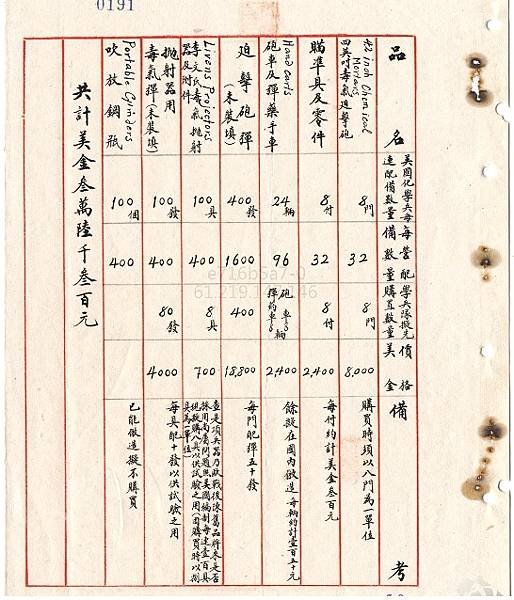 0191
品名
美國化學兵每連配備數量
每營配備數量
學兵隊擬先購買數量
價格美金
備考
4.2 inch Chemical Mortars
四英吋毒氣迫擊砲
8門
32
8門
8,000
購買時須以八門為一單位
瞄準具及零件
8付
32
8付
2,400
每付約計美金叁百元
Hand carts
砲車及彈藥手車
24輛
96
砲車8輛
彈約車8
2,400
餘擬在國內倣造每輛約計壹百五十元
迫擊砲彈
(未裝填)
400發
1600
400
18,800
每門配彈五十發
Livens Projectors
李文氏毒氣拋射器及附件
100具
400
8具
700
查是項兵器乃歐戰後陳舊品將來是否
採用尚屬問題照美國編制每連壹百具
現擬購八具以供試驗之用(每購買時以捌
具為一單位)
拋射器用
毒氣彈(未裝填)
100發
400
80發
4000
每具配十發以供試驗之用
Portable Cylinders
吹放鋼瓶
100個
400
已能倣造擬不購買
共計美金叁萬陸千叁百元
e716b5a7-0